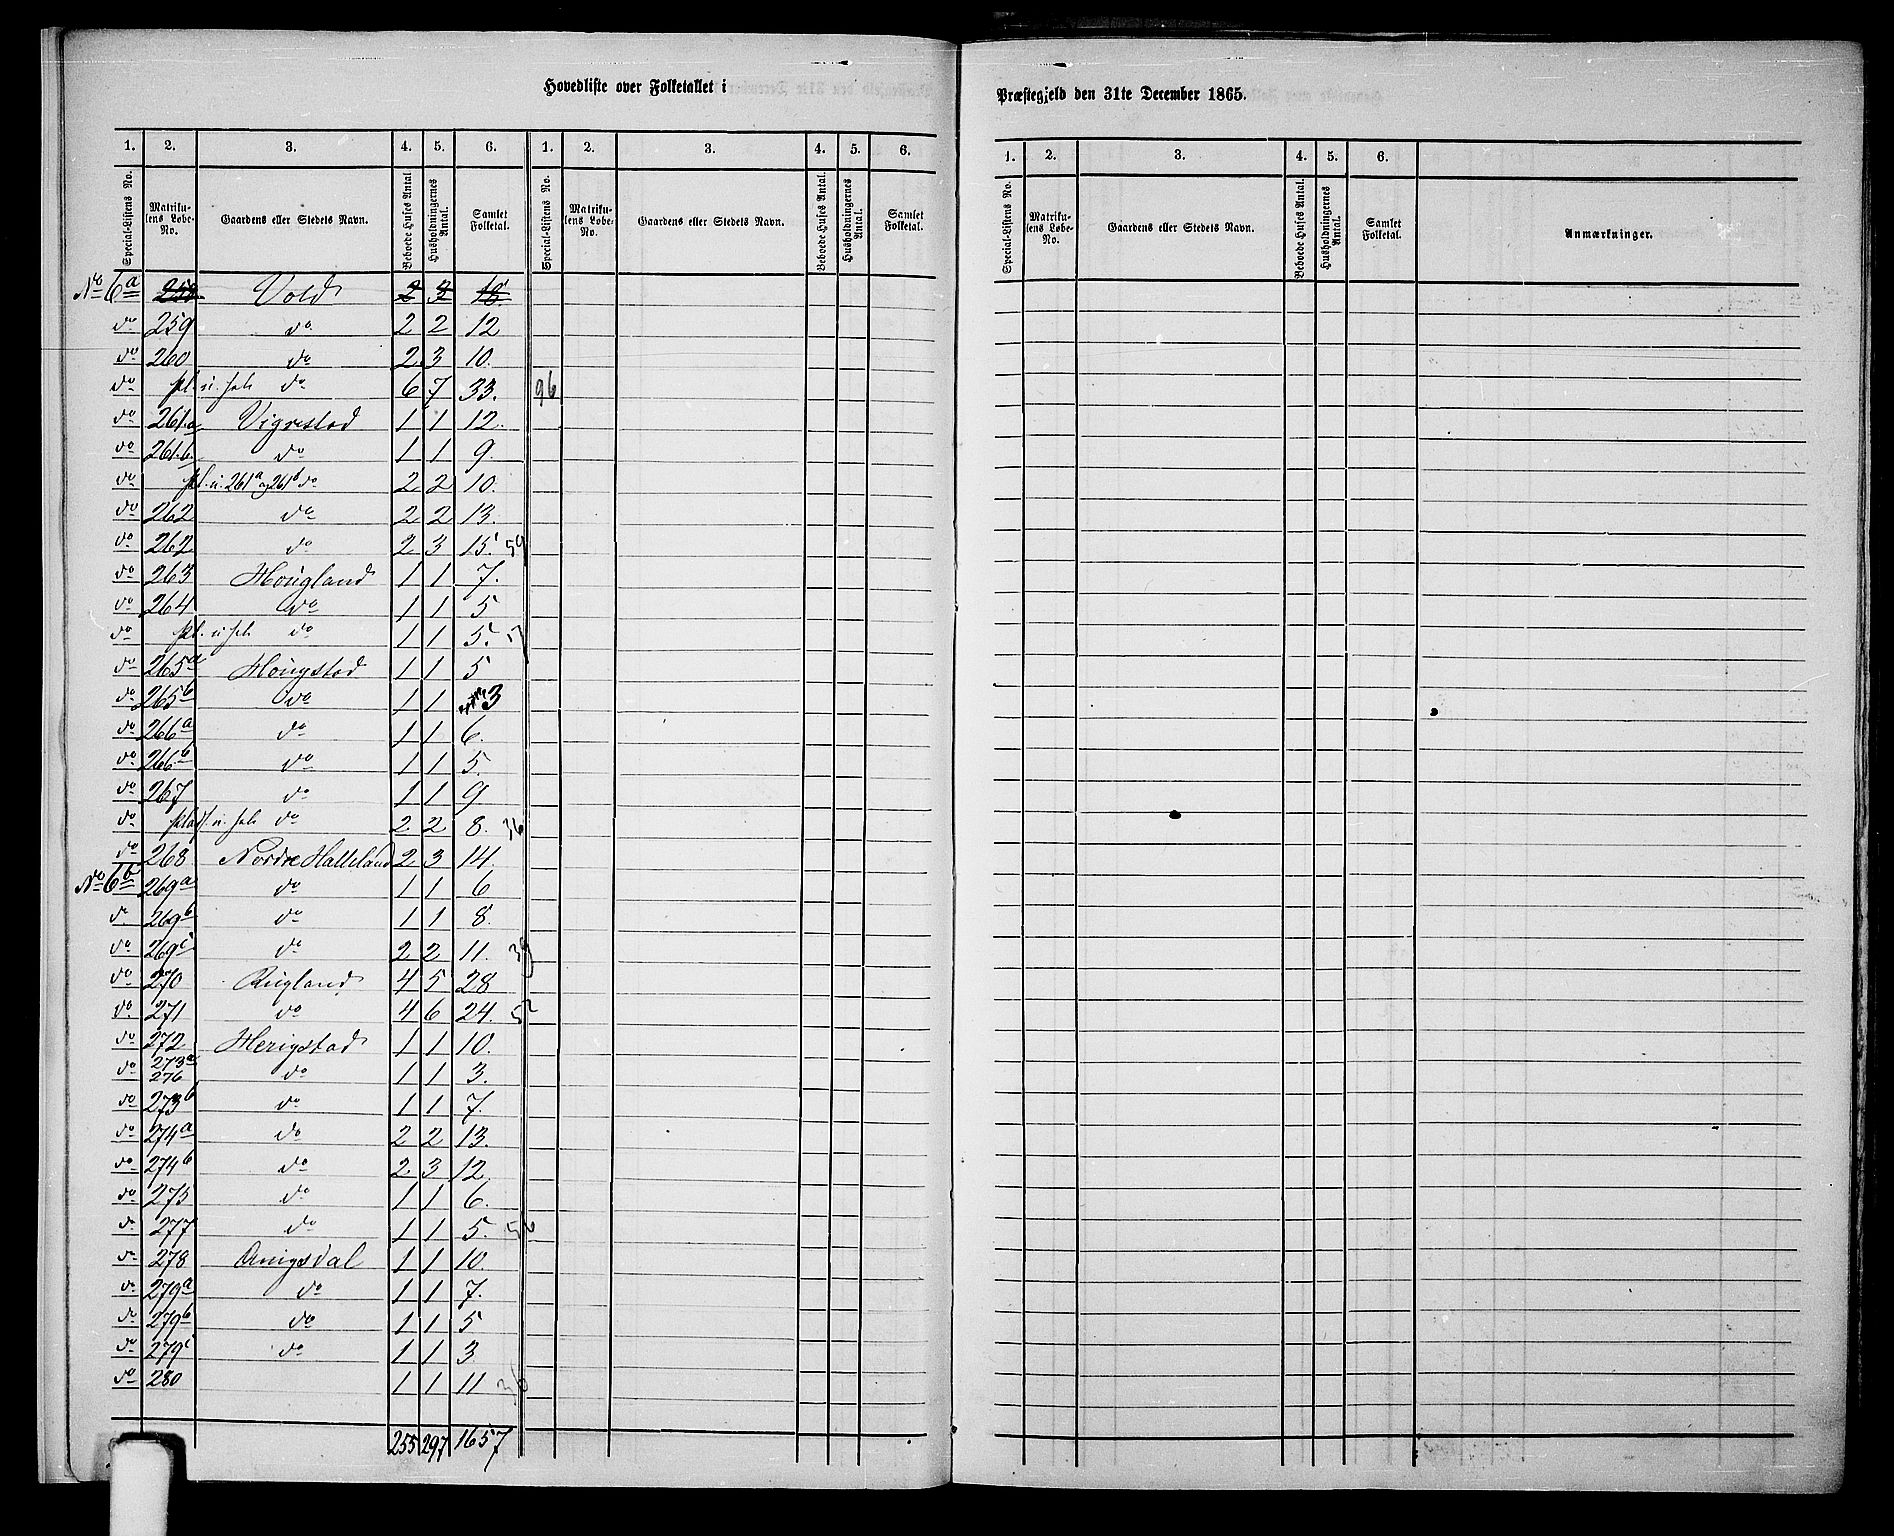 Hovedliste over Folketallet i
1. 2. 3. 4. 5. 6. 1. 2. 3. 4. 5. 6.
Special-Listens No. Matrikulens Løbe-No. Gaardens eller Stedets Navn. Beboede Huses Antal Husholdningernes Antal. Samlet Folketal. Special-Listens No. Matrikulens Løbe-No. Gaardens eller Stedets Navn. Beboede Huses Antal. Husholdningernes Antal. Samlet Folketal.
No 6a 258 Vold 2 3 18
do 259 do 2 2 12
do 260 do 2 3 10.
do pl. u. 6 7 33. 96
do 261.a Vigrestad 1 1 12.
do 261.b. do 1 1 9.
do pl. u. 261a og 261b do 2 2 10.
do 262 do 2 2 13.
do 262 do 2 3 15. 59
do 263 Hougland 1 1 7.
do 264 do 1 1 5
do pl. u. do 1 1 5. 17
do 265a Hougstad 1 1 5
do 265b do 1 1 3
do 266a do 1 1 6.
do 266b do 1 1 5.
do 267 do 1 1 9
do plads. u. do 2 2 8. 36
do 268 Nordre Halleland 2 3 14.
No 6b 269a do 1 1 6
do 269b do 1 1 8.
do 269c do 2 2 11. 39
do 270 Rugland 4 5 28
do 271 do 4 6 24. 52
do 272 Herigstad 1 1 10.
do 273a 276 do 1 1 3.
do 273b do 1 1 7.
do 274a do 2 2 13.
do 274b do 2 3 12.
do 275 do 1 1 6.
do 277 do 1 1 5. 56
do 278 Anigsdal 1 1 10.
do 279a do 1 1 7.
do 279b do 1 1 5
do 279c do 1 1 3
do 280 1 1 11 36
255 297 1657
Præstegjeld den 31te December 1865.
1. 2. 3. 4. 5. 6.
Special-Listens No. Matrikulens Løbe-No. Gaardens eller Stedets Navn. Beboede Huses Antal. Husholdningernes Antal. Samlet Folketal. Anmærkninger.